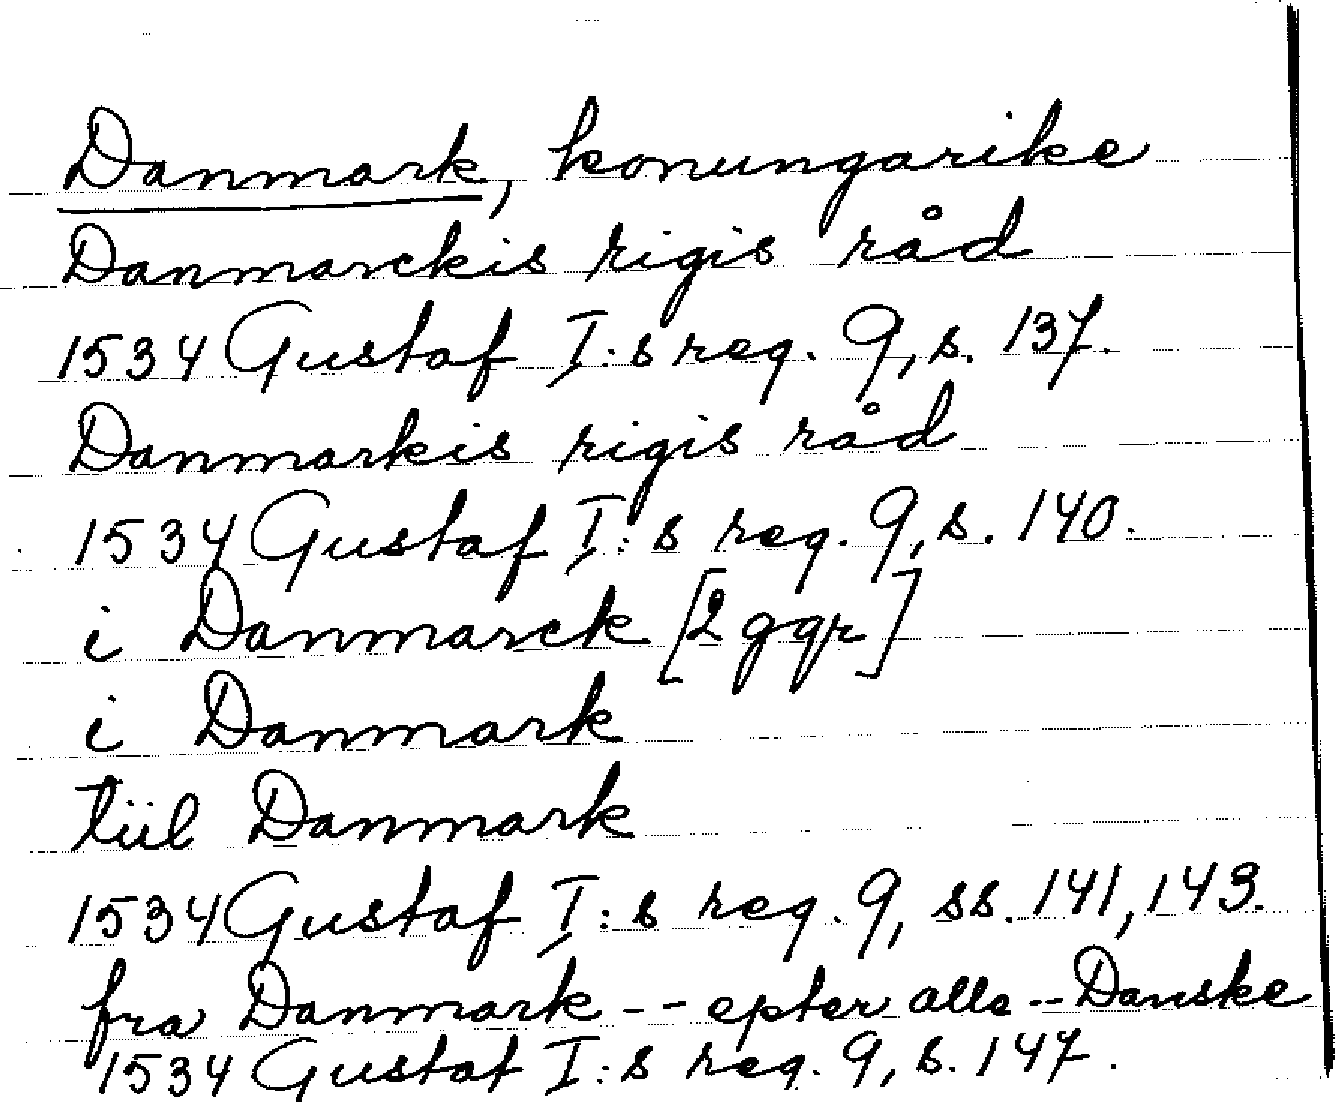 Danmark, konungarike
Danmarckis rigis råd
1534 Gustaf I:s reg. 9, s. 137.
Danmarkis rigis råd
1534 Gustaf I:s reg. 9, s. 140.
i Danmarck [2 ggr]
i Danmark
tiil Danmark
1534 Gustaf I:s reg. 9, ss. 141, 143.
fra Danmark -- epter alle -- Danske
1534 Gustaf I:s reg. 9, s. 147.